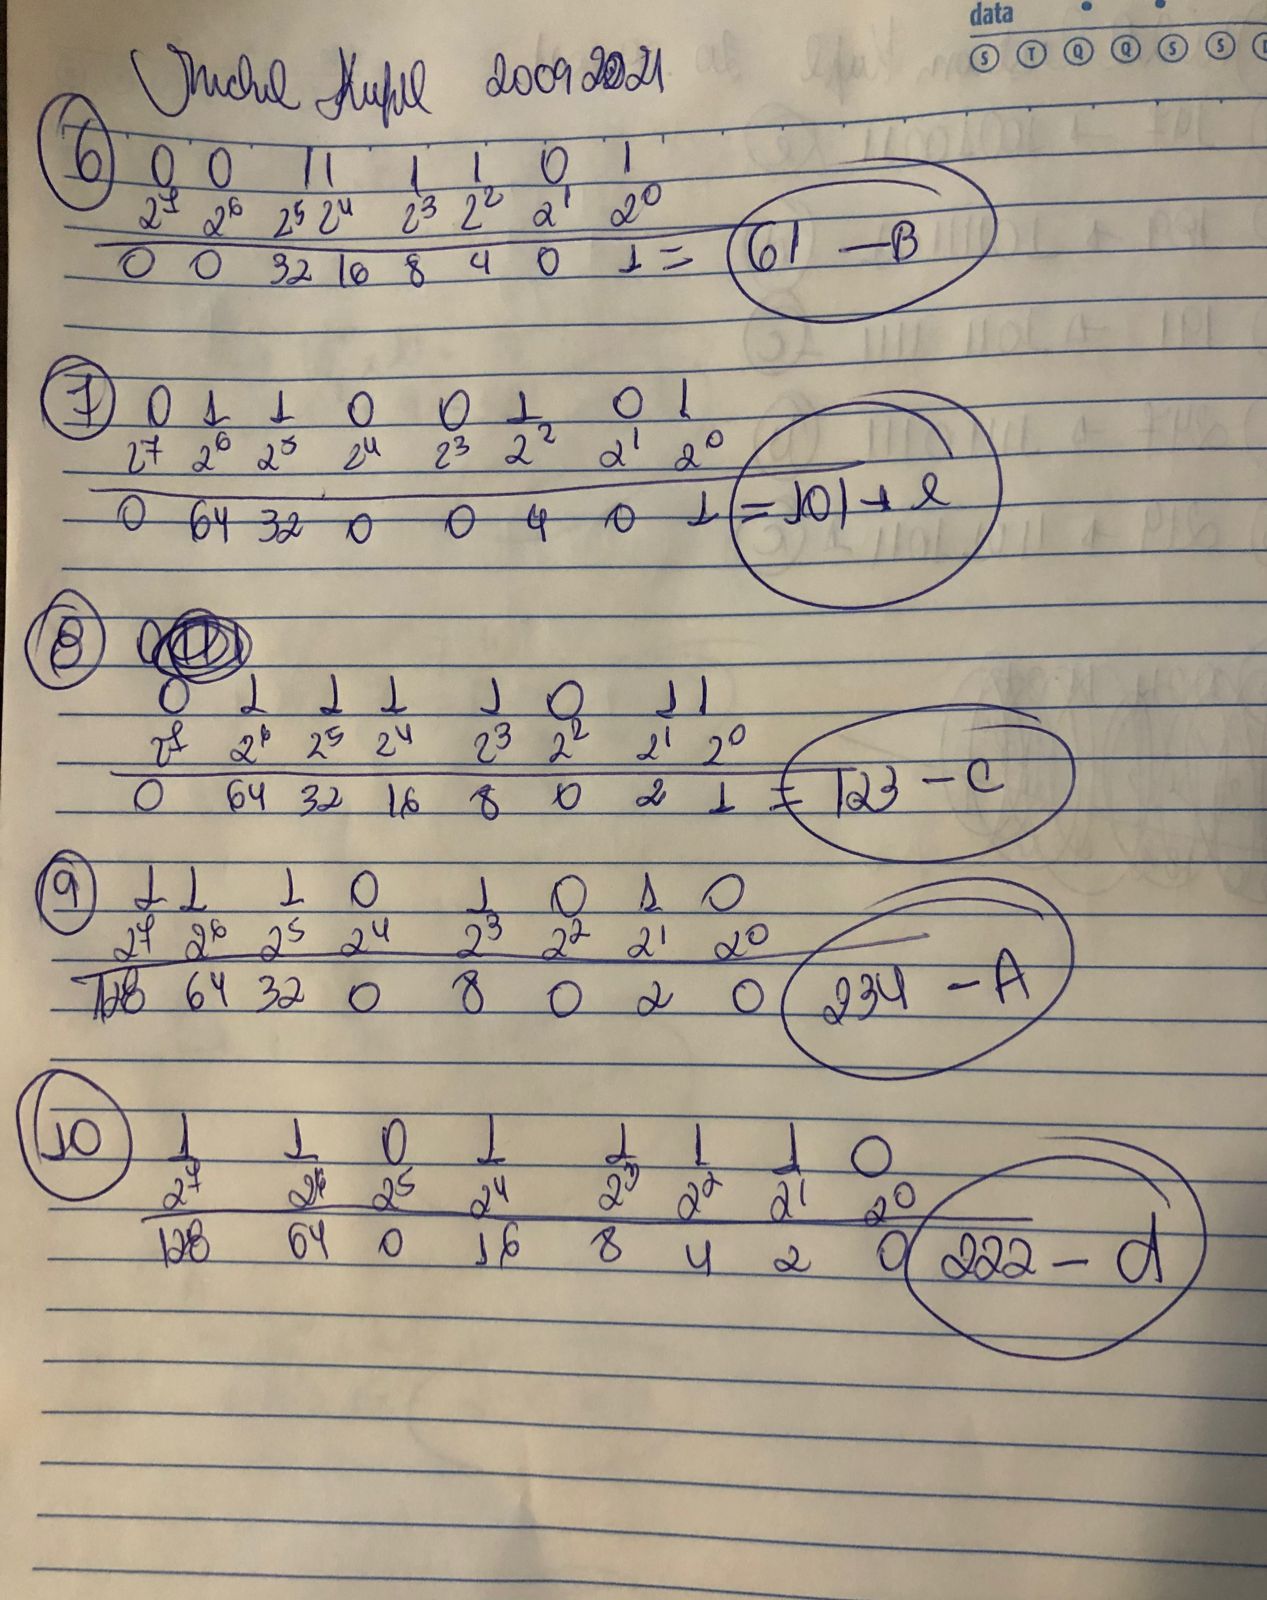 data
S T Q Q S S
Kupel 20092021
6 0 0 1 1 1 1 0 1
2⁷ 2⁶ 2⁵ 2⁴ 2³ 2² 2¹ 2⁰
0 0 32 16 8 4 0 1 = 61 - B
7 0 1 1 0 0 1 0 1
2⁷ 2⁶ 2⁵ 2⁴ 2³ 2² 2¹ 2⁰
0 64 32 0 0 4 0 1 = 101 → e
8
0 1 1 1 1 0 1 1
2⁷ 2⁶ 2⁵ 2⁴ 2³ 2² 2¹ 2⁰
0 64 32 16 8 0 2 1 = 123 - C
9 1 1 1 0 1 0 1 0
2⁷ 2⁶ 2⁵ 2⁴ 2³ 2² 2¹ 2⁰
128 64 32 0 8 0 2 0 234 - A
10 1 1 0 1 1 1 1 0
2⁷ 2⁶ 2⁵ 2⁴ 2³ 2² 2¹ 2⁰
128 64 0 16 8 4 2 0 222 - d